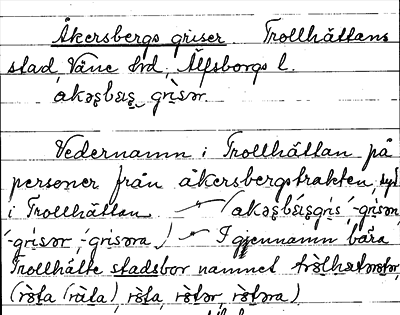 Åkersbergs griser Trollhättans
stad, Väne hd, Älfsborgs l.
åkəʂbæʂ grisər
Vedernamn i Trollhättan på
personer från åkersbergstrakten, syd
i Trollhättan (åkəʂbǽʂgris, -grisən,
-grisər, -grisəra) I gjennamn bära
Trollhätte stadsbor namnet
(rɔ̀ta (ràta), rɔ̀ta, rɔ̀tər, rɔ̀təra)